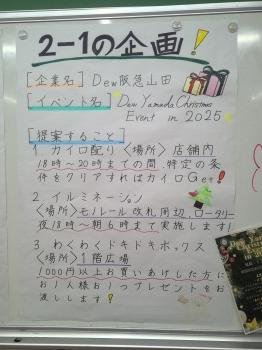 2-1の企画!
[企業名] Dew阪急山田
[イベント名] Dew Yamada Christmas
Event in 2025
[提案すること]
1. カイロ配り〈場所〉店舗内
18時〜20時までの間、特定の条
件をクリアすればカイロGet!
2. イルミネーション
〈場所〉モノレール改札周辺、ロータリー
夜18時〜朝6時まで実施します!
3. わくわくドキドキボックス
〈場所〉1階広場
1000円以上お買いあげした方に
お1人様お1つプレゼントをお
渡しします!